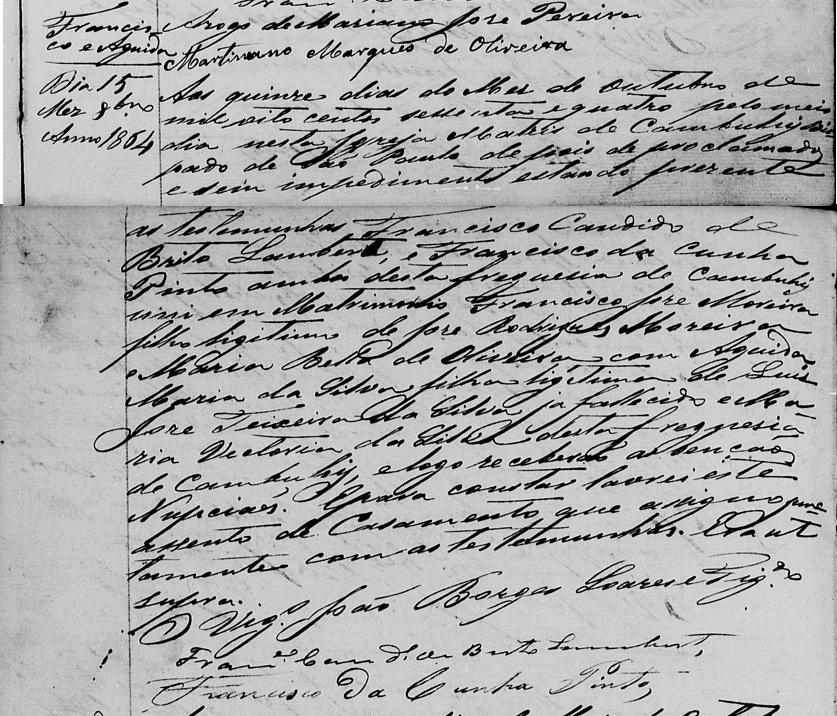 Francis
co e Aguida
Dia 15
Mez 8bro
Anno 1864
Arogo de Mariano José Pereira
Martiniano Marques de Oliveira
Aos quinze dias do Mez de Outubro de
mil oito centos sessenta e quatro pelo meio
dia nesta Igreja Matris de Cambuhy Bis
pado de São Paulo depois de proclamados
e sem impedimento estando prezente
as testemunhas Francisco Candido de
Brito Lambert, e Francisco da Cunha
Pinto ambos desta freguesia de Cambuhy
uni em Matrimonio Francisco José Moreira
filho ligitimo de José Rodrigues Moreira
e Maria Bella de Oliveira com Aguida
Maria da Silva filha ligitima de Luis
José Teixeira da Silva ja fallecido e Ma
ria Victoria da Silva desta freguesia
de Cambuhy, e logo receberão as bençãos
Nupciaes. E para constar lavrei este
assento de Casamento que assigno junc
tamente com as testemunhas. Era ut
supra.
O Vigro João Borges Soares e Figdo
Franco Candido Brito Lambert,
Francisco Da Cunha Pinto,